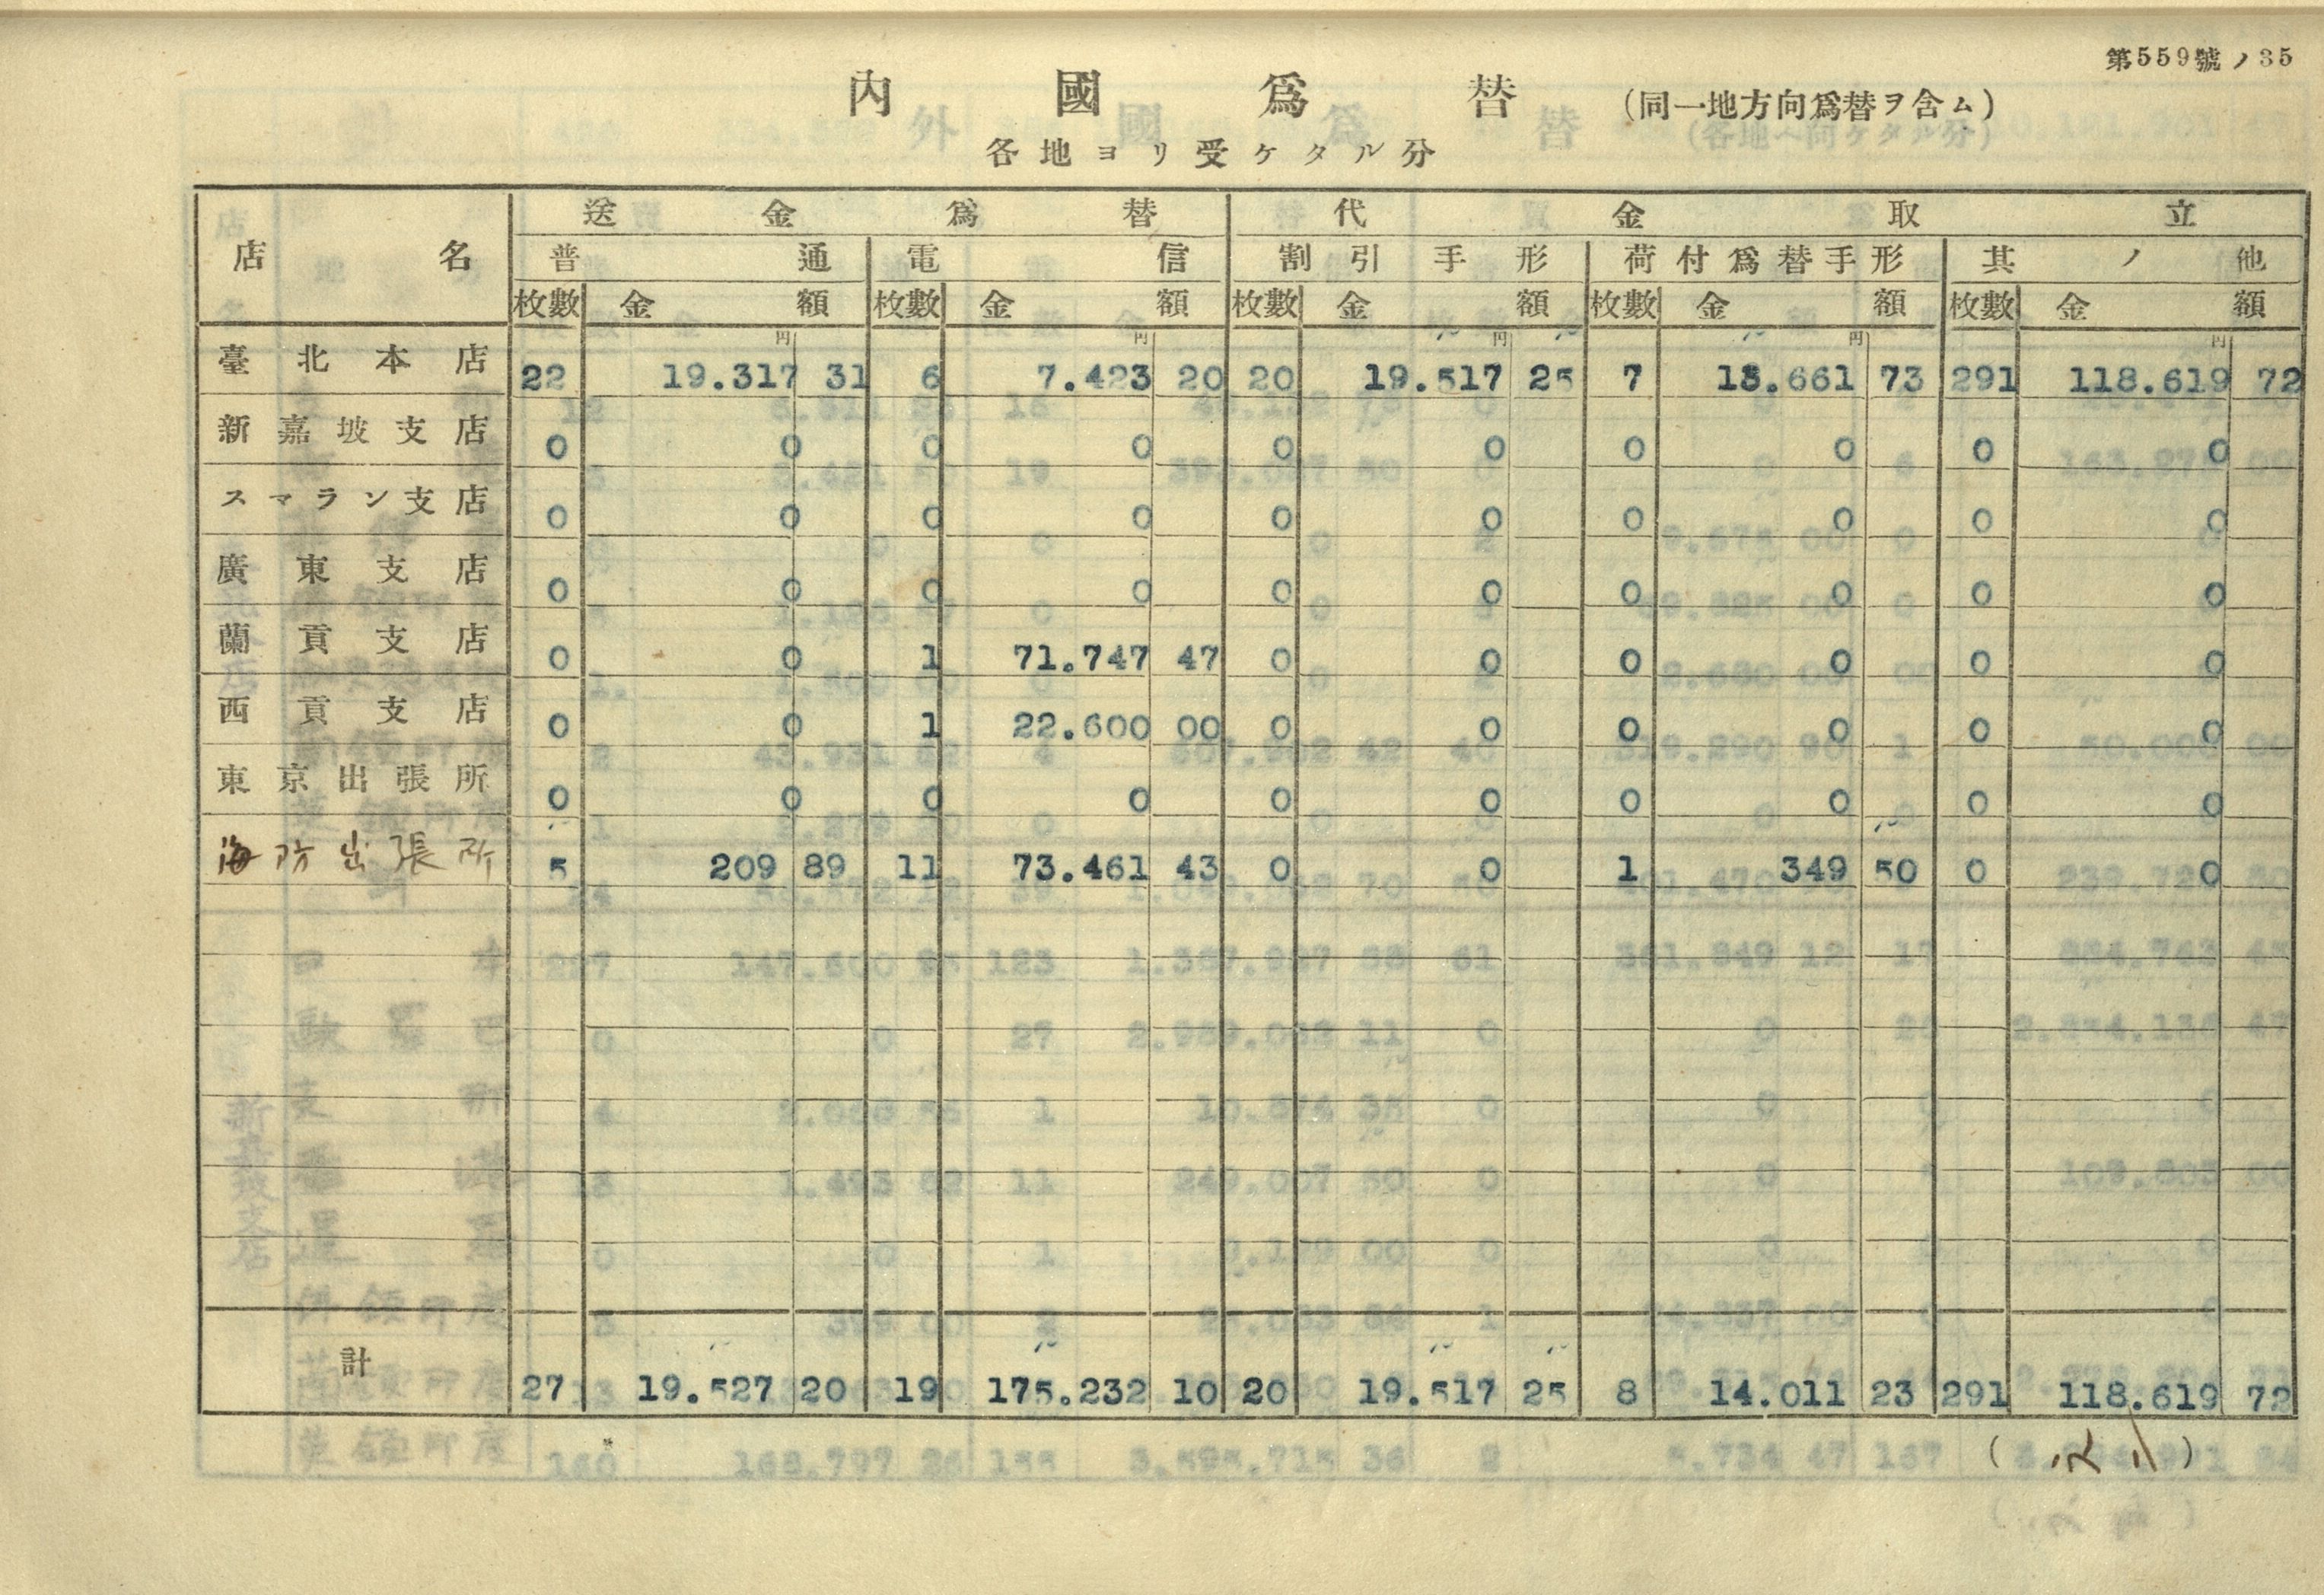 第559號ノ35
內國爲替 (同一地方向爲替ヲ含ム)
各地ヨリ受ケタル分
店名 送金爲替 代金取立
普通 電信 割引手形 荷付爲替手形 其ノ他
枚數 金額 枚數 金額 枚數 金額 枚數 金額 枚數 金額
円 円 円 円 円
臺北本店 22 19.317 31 6 7.423 20 20 19.517 25 7 13.661 73 291 118.619 72
新嘉坡支店 0 0 0 0 0 0 0 0 0 0
スマラン支店 0 0 0 0 0 0 0 0 0 0
廣東支店 0 0 0 0 0 0 0 0 0 0
蘭貢支店 0 0 1 71.747 47 0 0 0 0 0 0
西貢支店 0 0 1 22.600 00 0 0 0 0 0 0
東京出張所 0 0 0 0 0 0 0 0 0 0
海防出張所 5 209 89 11 73.461 43 0 0 1 349 50 0 0
計 27 19.527 20 19 175.232 10 20 19.517 25 8 14.011 23 291 118.619 72